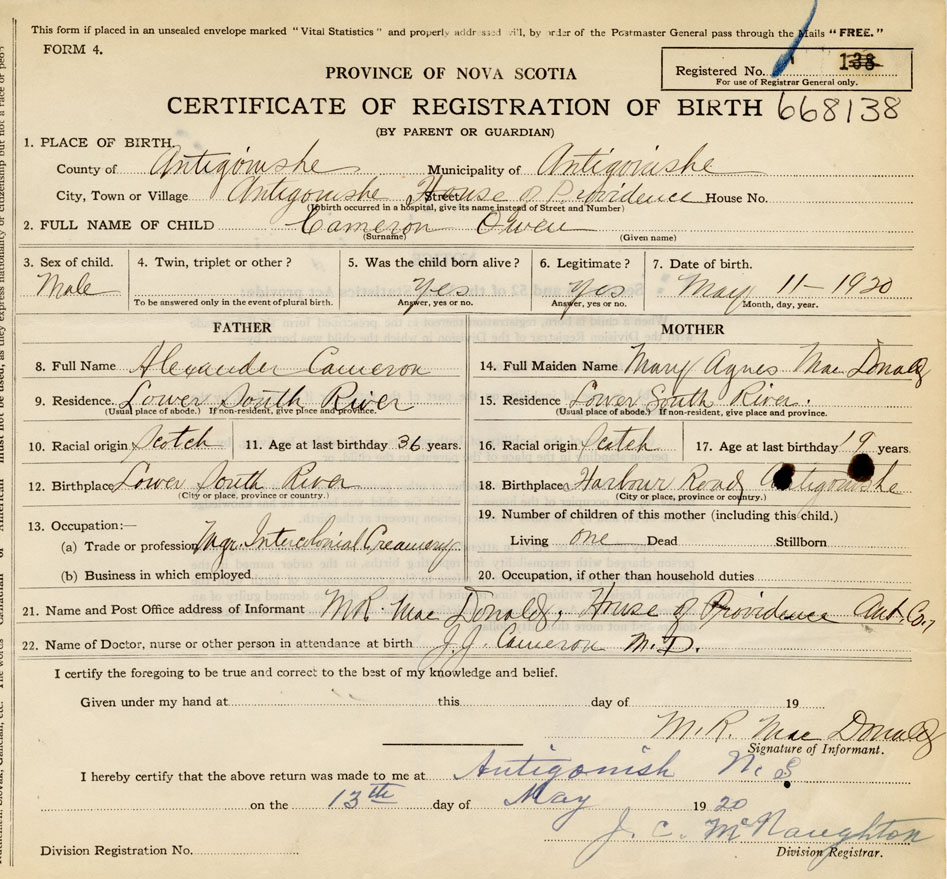 This form if placed in an unsealed envelope marked "Vital Statistics" and properly addressed will, by order of the Postmaster General pass through the Mails "FREE."
FORM 4.
Registered No. 138
For use of Registrar General only.
PROVINCE OF NOVA SCOTIA
CERTIFICATE OF REGISTRATION OF BIRTH 668138
(BY PARENT OR GUARDIAN)
1. PLACE OF BIRTH.
County of Antigonishe Municipality of Antigonishe
City, Town or Village Antigonishe Street House of Providence House No.
(If birth occurred in a hospital, give its name instead of Street and Number)
2. FULL NAME OF CHILD Cameron Owen
(Surname) (Given name)
3. Sex of child. 4. Twin, triplet or other? 5. Was the child born alive? 6. Legitimate? 7. Date of birth.
Male yes yes May 11-1920
To be answered only in the event of plural birth. Answer, yes or no. Answer, yes or no. Month, day, year.
FATHER MOTHER
8. Full Name Alexander Cameron 14. Full Maiden Name Mary Agnes Mac Donald
9. Residence Lower South River 15. Residence Lower South River.
(Usual place of abode.) If non-resident, give place and province. (Usual place of abode.) If non-resident, give place and province.
10. Racial origin Scotch 11. Age at last birthday 36 years. 16. Racial origin Scotch 17. Age at last birthday 19 years.
12. Birthplace Lower South River 18. Birthplace Harbour Road Antigonishe
(City or place, province or country.) (City or place, province or country.)
13. Occupation:— 19. Number of children of this mother (including this child.)
(a) Trade or profession Mgr. Intercolonial Creamery Living one Dead Stillborn
(b) Business in which employed 20. Occupation, if other than household duties
21. Name and Post Office address of Informant M.R. Mac Donald, House of Providence Ant. Co.
22. Name of Doctor, nurse or other person in attendance at birth J.J. Cameron M.D.
I certify the foregoing to be true and correct to the best of my knowledge and belief.
Given under my hand at this day of 19
M.R. Mac Donald
Signature of Informant.
I hereby certify that the above return was made to me at Antigonish N.S
on the 13th day of May 1920
J. C. McNaughton
Division Registrar.
Division Registration No.